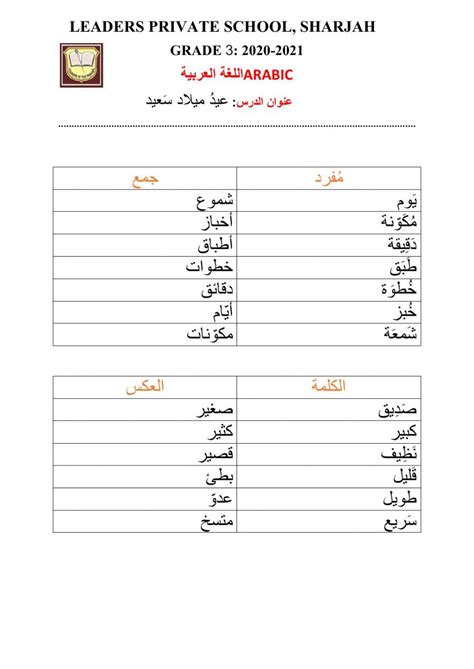 LEADERS PRIVATE SCHOOL, SHARJAH
GRADE 3: 2020-2021
اللغة العربية ARABIC
عنوان الدرس: عيدُ ميلاد سَعيد
مُفرد جمع
يَوم شموع
مُكَوّنة أخباز
دَقِيقة أطباق
طَبَق خطوات
خُطوَة دقائق
خُبز أيّام
شَمعَة مكوّنات
الكلمة العكس
صَدِيق صغير
كبير كثير
نَظِيف قصير
قَليل بطئ
طويل عدوّ
سَريع متسخ